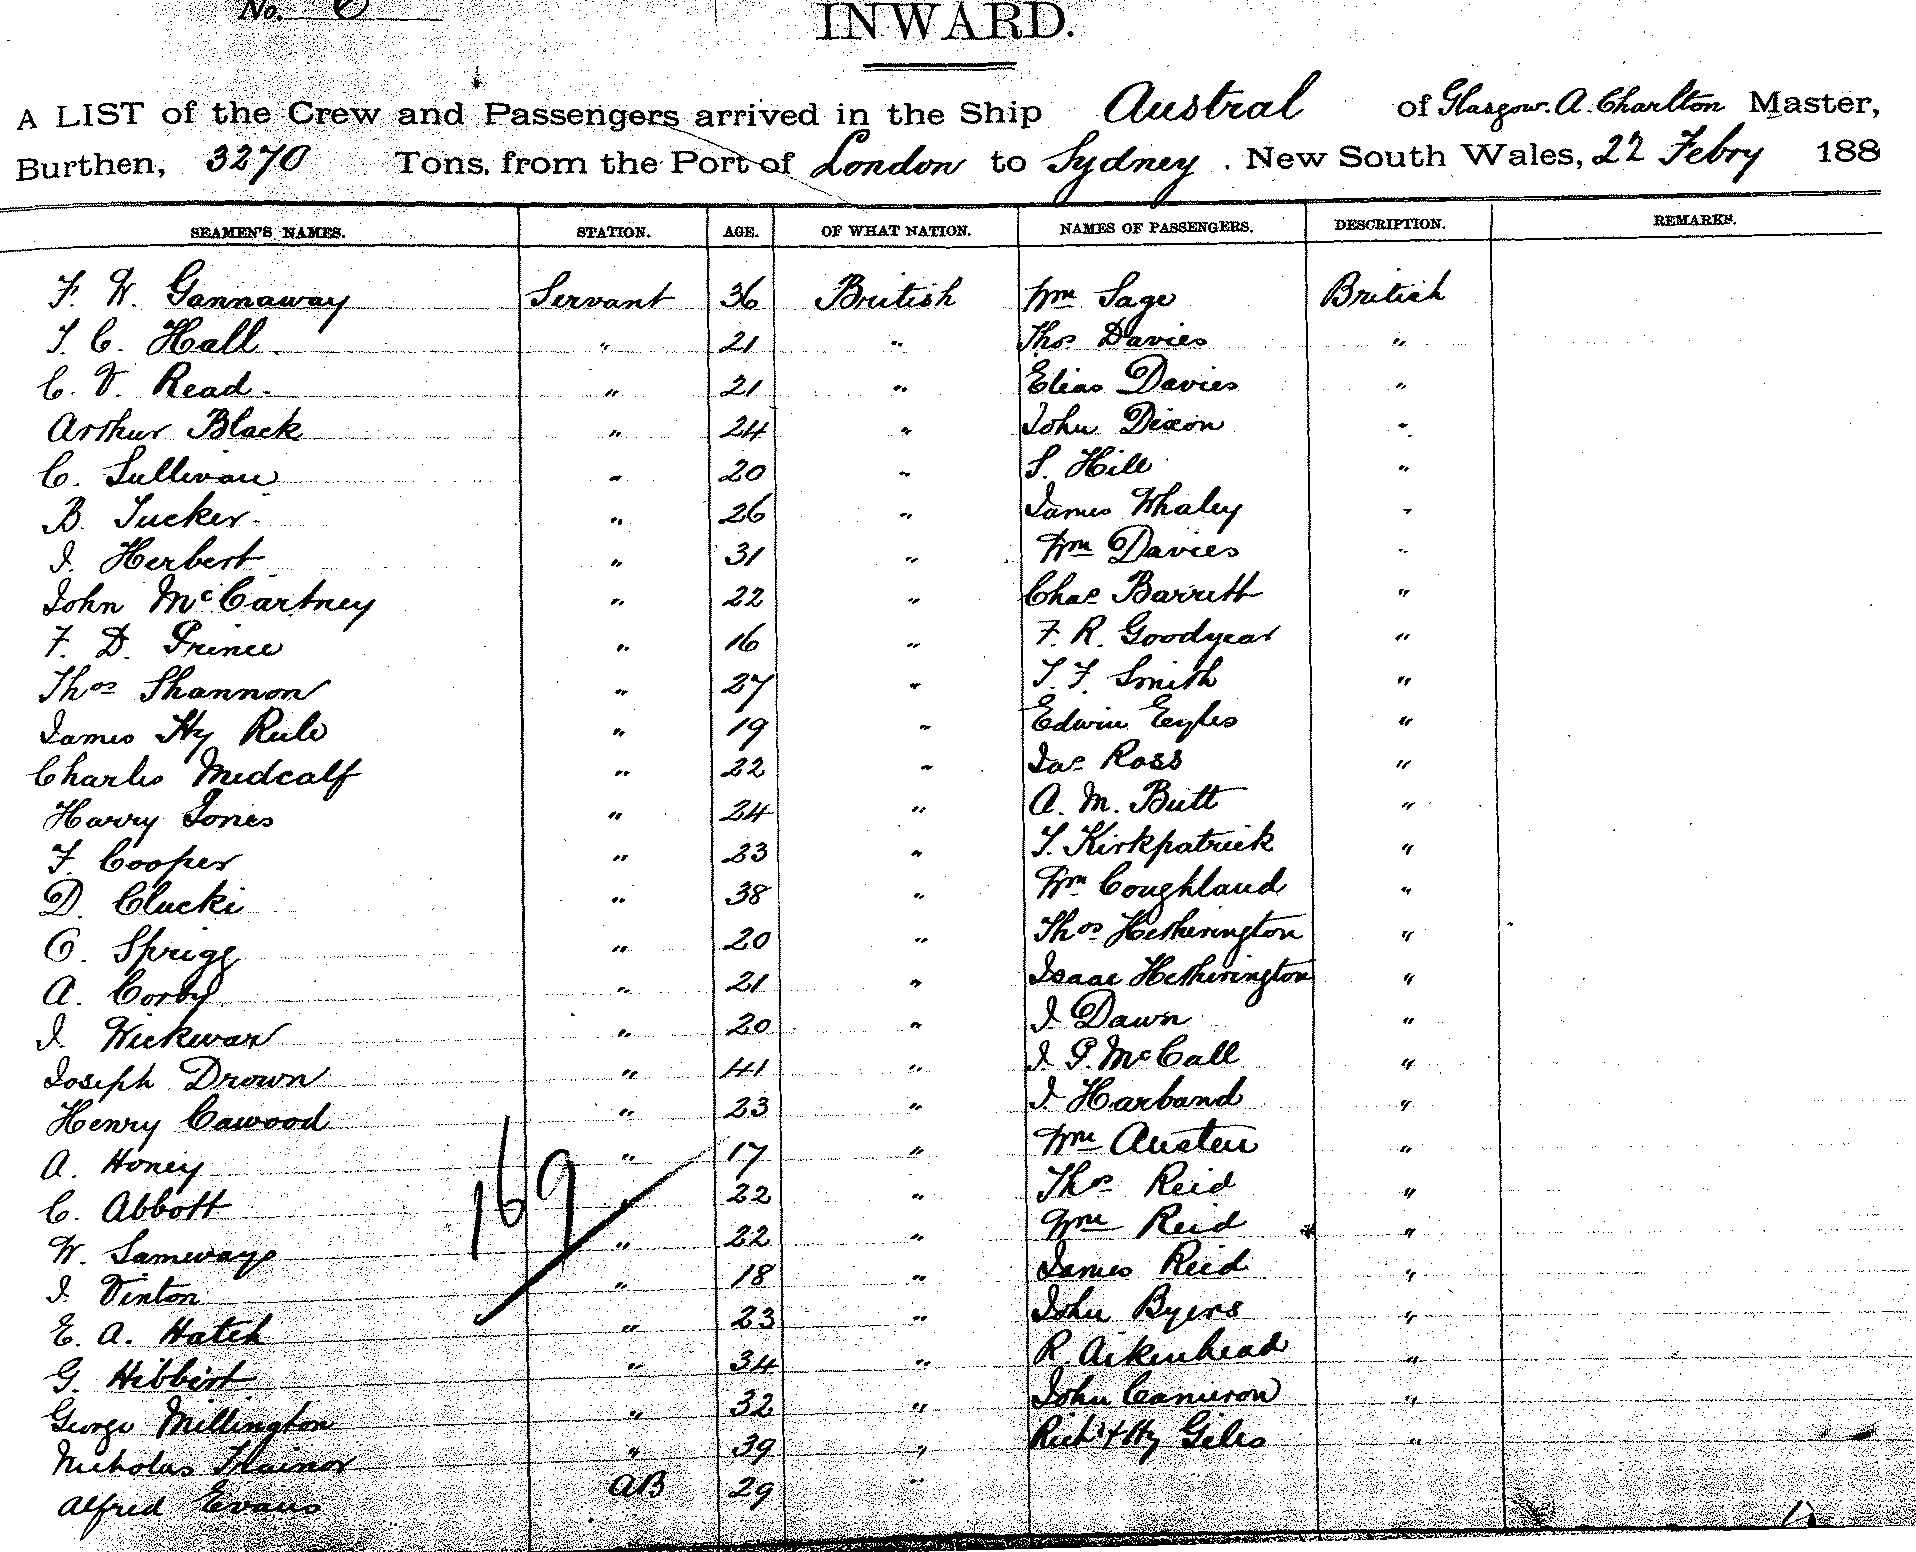 No. 6
INWARD.
A LIST of the Crew and Passengers arrived in the Ship Austral of Glasgow. A. Charlton Master,
Burthen, 3270 Tons, from the Port of London to Sydney. New South Wales, 22 Febry 188
SEAMEN'S NAMES. STATION. AGE. OF WHAT NATION. NAMES OF PASSENGERS. DESCRIPTION. REMARKS.
F. W. Gannaway Servant 36 British Wm Sage British
T. C. Hall " 21 " Thos Davies "
C. V. Read " 21 " Elias Davies "
Arthur Black " 24 " John Dixon "
C. Sullivan " 20 " S. Hill "
B. Tucker " 26 " James Whaley "
J. Herbert " 31 " Wm Davies "
John McCartney " 22 " Chas Barrett "
F. D. Prince " 16 " F. R. Goodyear "
Thos Shannon " 27 " T. F. Smith "
James Hy Rule " 19 " Edwin Eyles "
Charles Medcalf " 22 " Jas Ross "
Harry Jones " 24 " A. M. Butt "
F. Cooper " 23 " T. Kirkpatrick "
D. Clucki " 38 " Wm Coughland "
C. Sprigg " 20 " Thos Hetherington "
A. Corby " 21 " Isaac Hetherington "
J. Wickwar " 20 " J. Dawn "
Joseph Drown " 41 " J. P. McCall "
Henry Cawood " 23 " J. Harband "
A. Honey " 17 " Wm Austen "
C. Abbott " 22 " Thos Reid "
169
W. Sameways " 22 " Wm Reid "
J. Vinton " 18 " James Reid "
E. A. Hatch " 23 " John Byers "
G. Hibbert " 34 " R. Aikenhead "
George Millington " 32 " John Cameron "
Nicholas Trainor " 39 " Richd & Hy Giles "
Alfred Evans AB 29 "